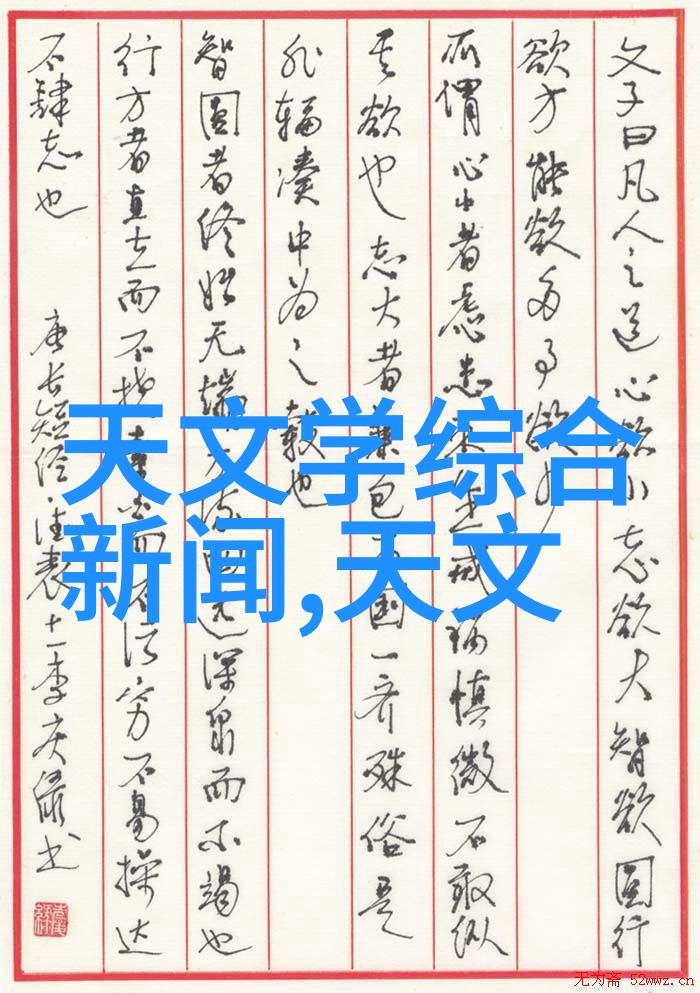 文子曰凡人之道心欲小志欲大智欲圆行
欲方能欲多事欲少
所谓心小者虑患未生戒祸慎微不敢纵
其欲也志大者兼包万国一齐殊俗是
非辐凑中为之毂也
智圆者终始无端方流四远深泉而不竭也
行方者直立而不挠素白而不污穷不易操达
不肆志也
唐长短经
天文学综合
新闻,天文
无为斋 52wwz.cn